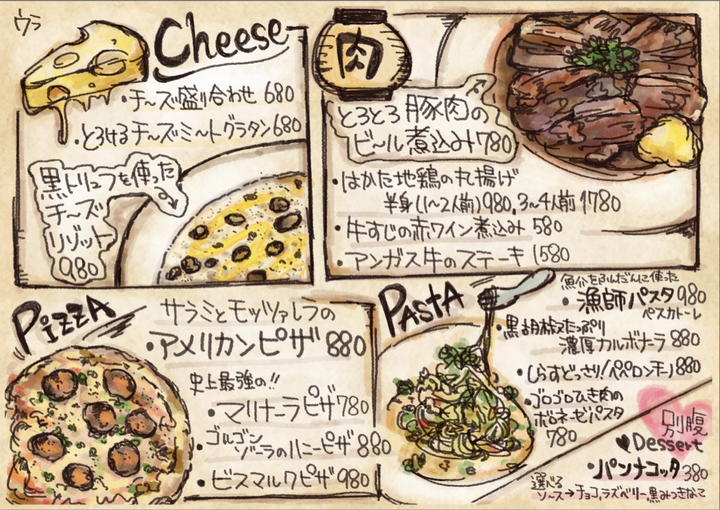 ウラ
Cheese
・チ〜ズ盛り合わせ 680
・とろけるチ〜ズミ〜トグラタン 680
黒トリュフを使った
チ〜ズ
リゾット
980
肉
とろとろ豚肉の
ビ〜ル煮込み 780
・はかた地鶏の丸揚げ
半身(1〜2人前)980, 3〜4人前 1780
・牛すじの赤ワイン煮込み 580
・アンガス牛のステーキ 1580
PizzA
サラミとモッツァレラの
・アメリカンピザ 880
史上最強の!!
・マリナーラピザ 780
・ゴルゴン
ゾーラのハニーピザ 880
・ビスマルクピザ 980
PAStA
魚介をふんだんに使った
・漁師パスタ 980
ペスカトーレ
・黒胡椒たっぷり
濃厚カルボナーラ 880
・しらすどっさり!ペペロンチーノ 880
・ゴロゴロひき肉の
ボロネーゼパスタ
780
別腹
♥Dessert
・パンナコッタ 380
選べる
ソース→チョコ,ラズベリー,黒みつきなこ